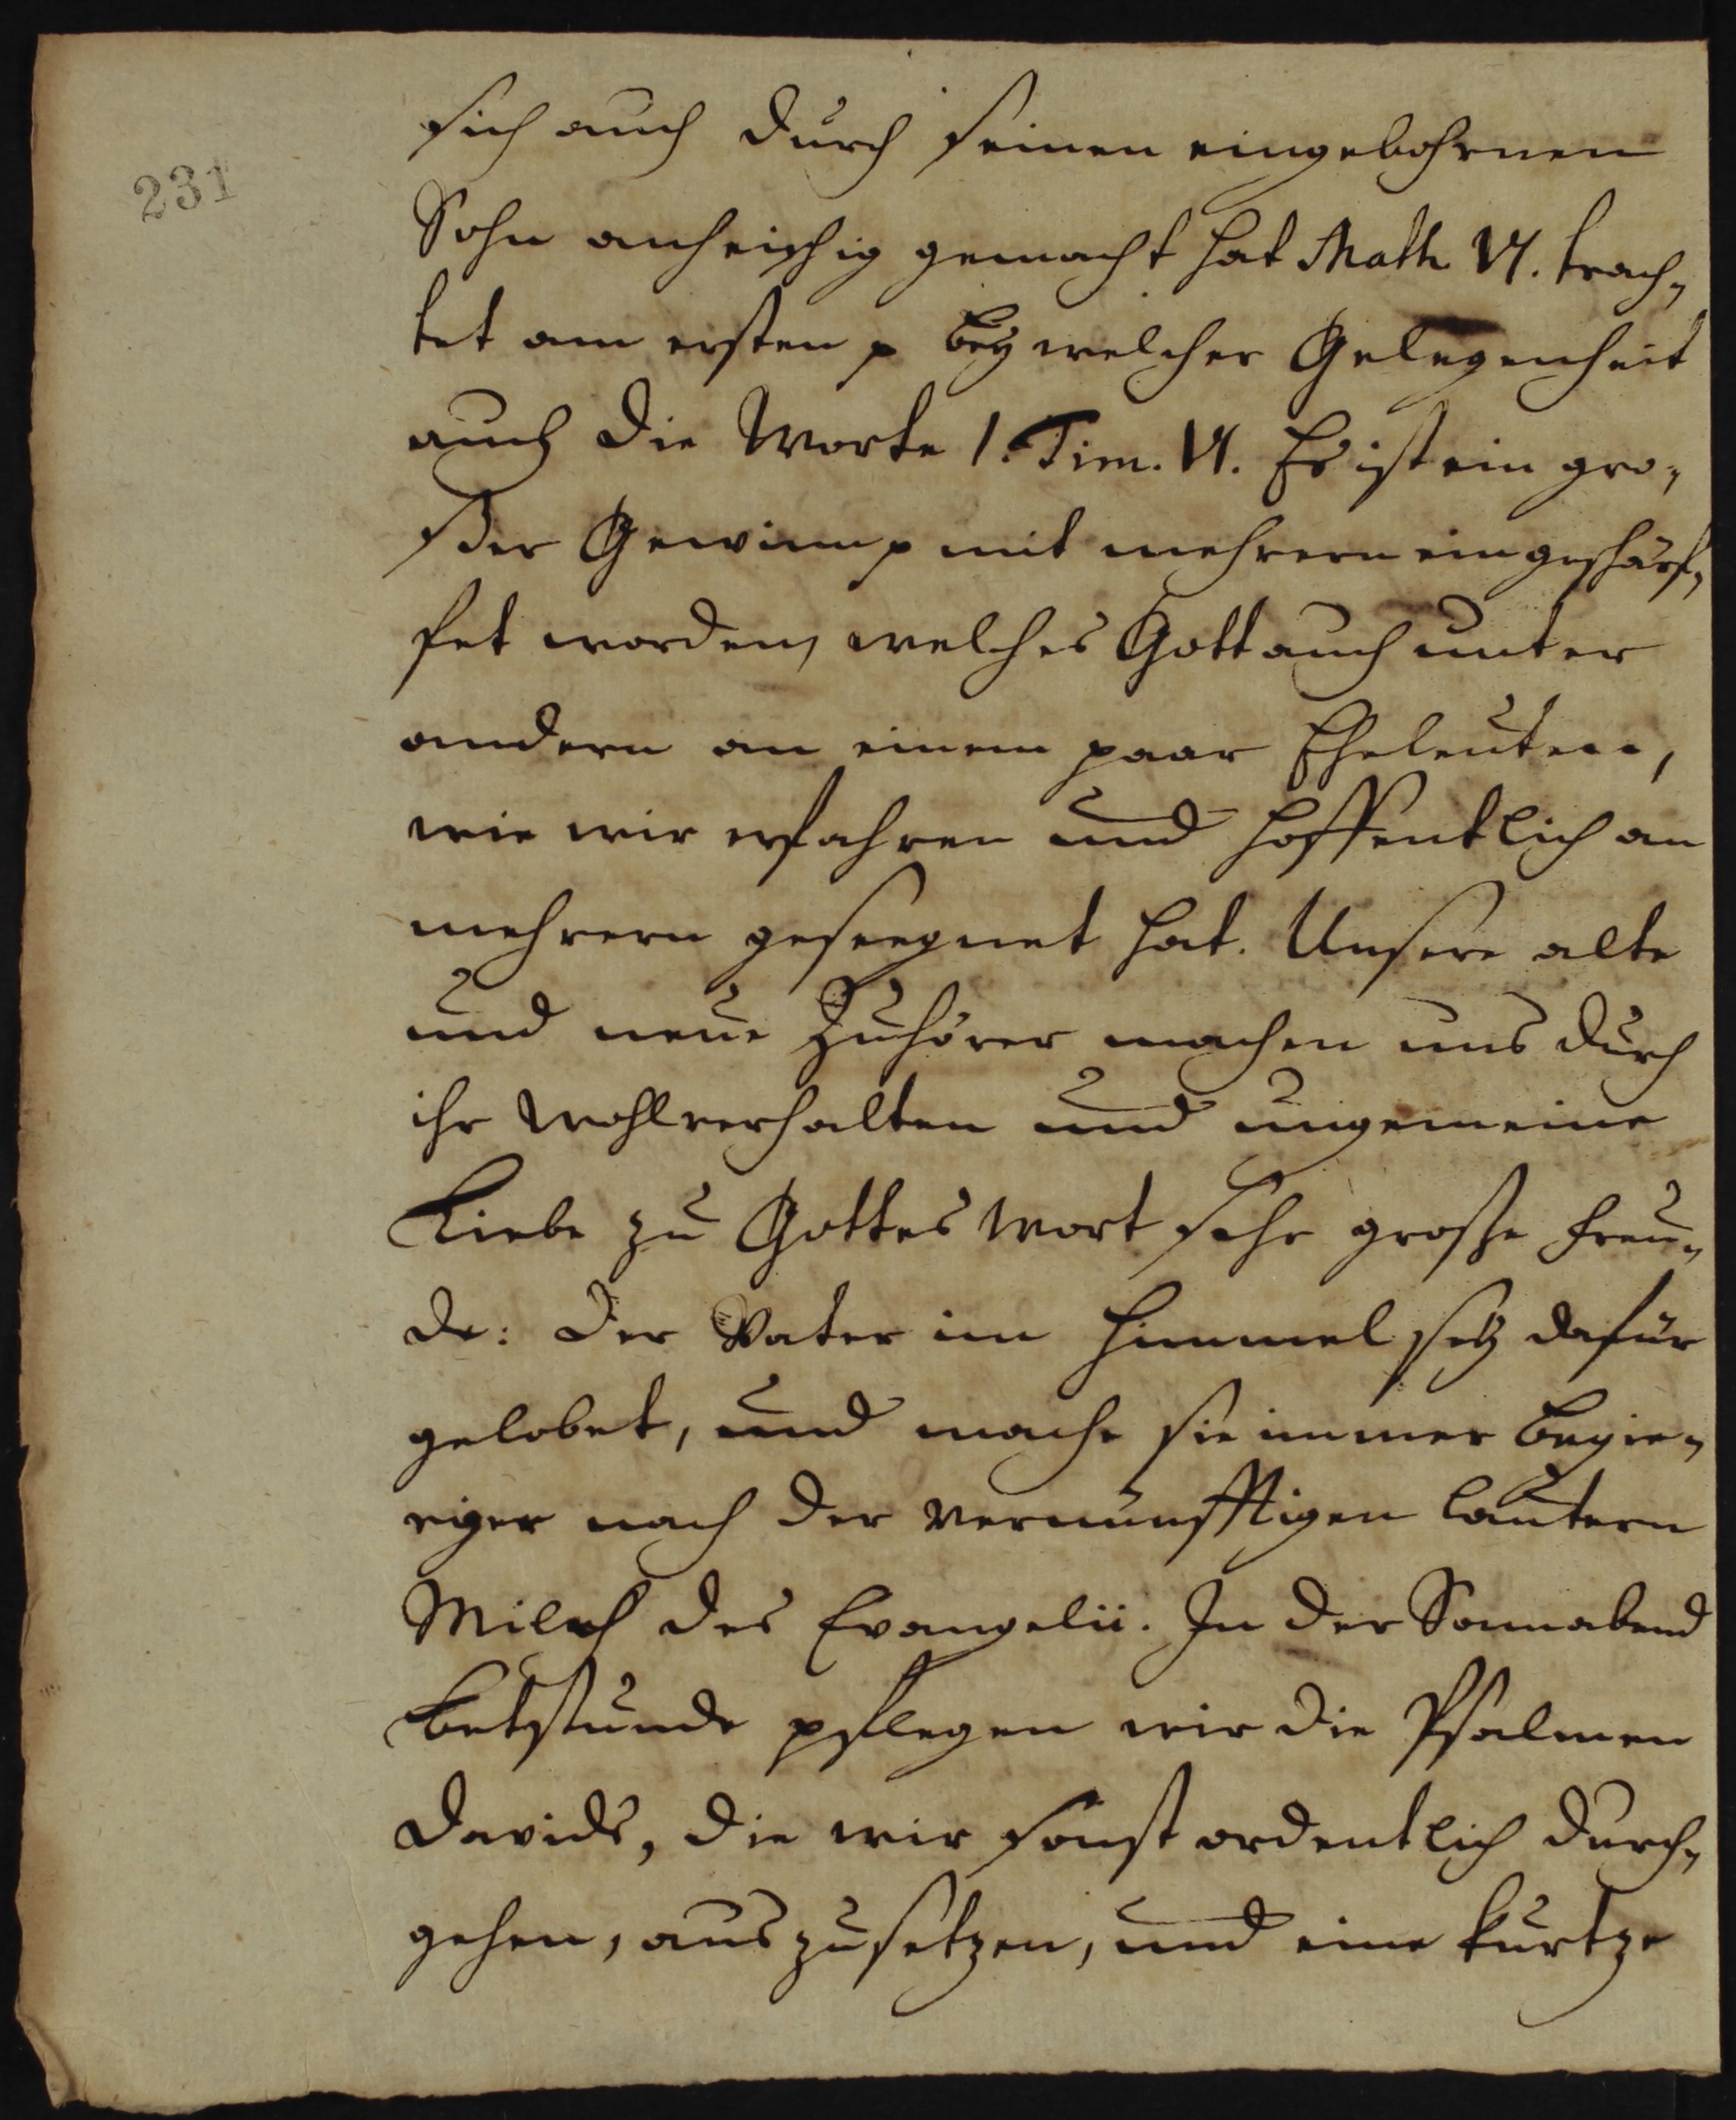 231
sich auch durch seinen eingebohrnen
Sohn anheischig gemacht hat Matth VI. trach-
tet am ersten p bey welcher Gelegenheit
auch die Worte 1. Tim. VI. Es ist ein gro-
ßer Gewinn p mit mehrern eingeschärf-
fet worden, welches Gott auch unter
andern an einem paar Eheleuten,
wie wir erfahren und hoffentlich an
mehrern geseegnet hat. Unsere alte
und neue Zuhörer machen uns durch
ihr Wohlverhalten und ungemeine
Liebe zu Gottes Wort sehr große Freu-
de: Der Vater im Himmel sey dafür
gelobet, und mache sie immer begie-
riger nach der vernünfftigen lautern
Milch des Evangelii. In der Sonnabend
Betstunde pflegen wir die Psalmen
Davids, die wir sonst ordentlich durch-
gehen, auszusetzen, und eine kurtze